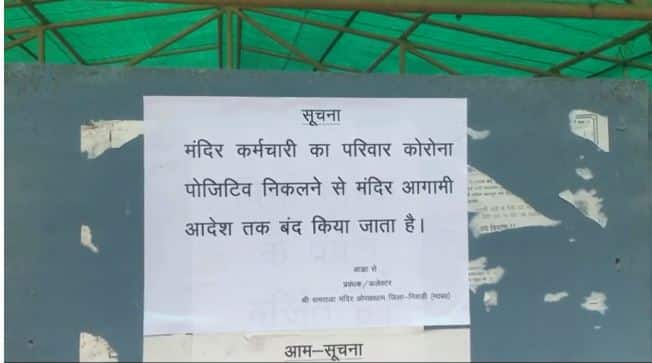 सूचना
मंदिर कर्मचारी का परिवार कोरोना
पोजिटिव निकलने से मंदिर आगामी
आदेश तक बंद किया जाता है।
आज्ञा से
प्रबंधक/कलेक्टर
श्री रामराजा मंदिर ओरछाधाम जिला-निवाड़ी (म०प्र०)
आम-सूचना